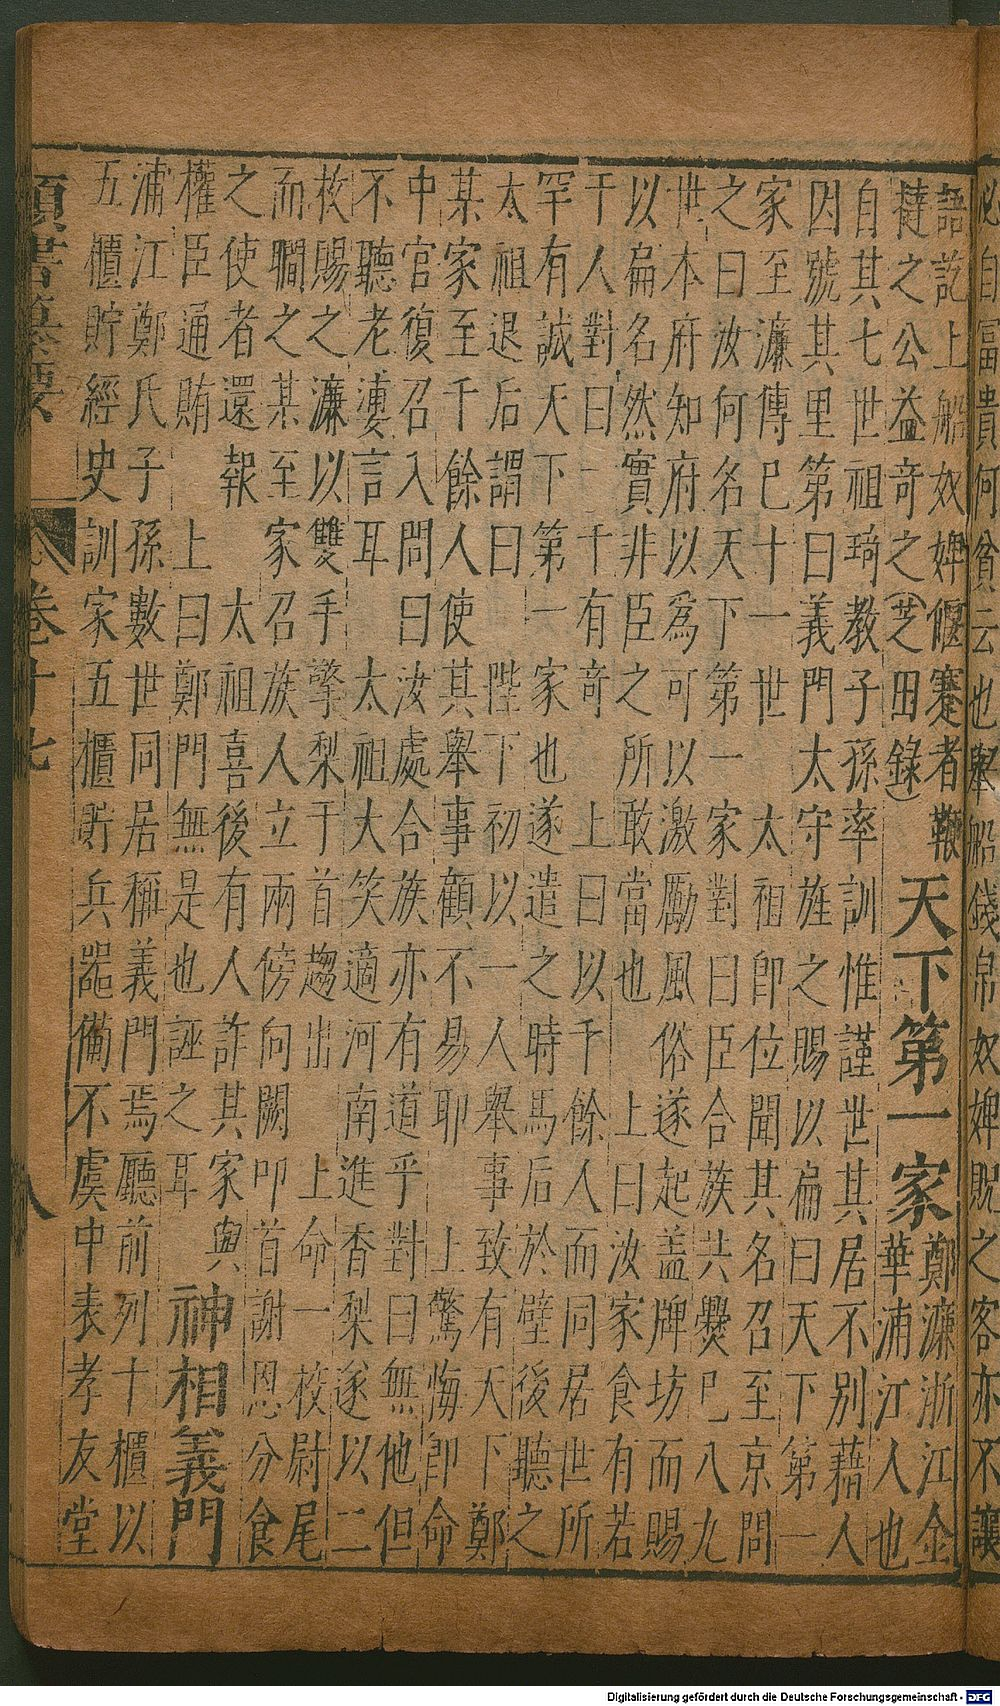 必自富貴何貧云也舉船錢帛奴婢貺之客亦不讓
語訖上船奴婢偃蹇者鞭
撻之公益奇之(芝田錄)
天下第一家
鄭濂浙江金
華浦江人也
自其七世祖琦教子孫率訓惟謹世其居不別藉人
因號其里第曰義門太守旌之賜以扁曰天下第一
家至濂傳已十一世 太祖即位聞其名召至京問
之曰汝何名天下第一家對曰臣合族共爨巳八九
世本府知府以為可以激勵風俗遂起盖牌坊而賜
以扁名然實非臣之所敢當也 上曰汝家食有若
干人對曰一千有奇 上曰以千餘人而同居世所
罕有誠天下第一家也遂遣之時馬后於壁後聽之
太祖退后謂曰 陛下初以一人舉事致有天下鄭
某家至千餘人使其舉事顧不易耶 上驚悔即命
中官復召入問曰汝處合族亦有道乎對曰無他但
不聽老婦言耳 太祖大笑適河南進香梨遂以二
枚賜之濂以雙手擎梨于首趨出 上命一校尉尾
而瞯之某至家召族人立兩傍向闕叩首謝恩分食
之使者還報 太祖喜後有人詐其家與
權臣通賄 上曰鄭門無是也誣之耳
神相義門
浦江鄭氏子孫數世同居稱義門焉廳前列十櫃以
五櫃貯經史訓家五櫃貯兵器備不虞中表孝友堂
卷十七
八
Digitalisierung gefördert durch die Deutsche Forschungsgemeinschaft - DFG